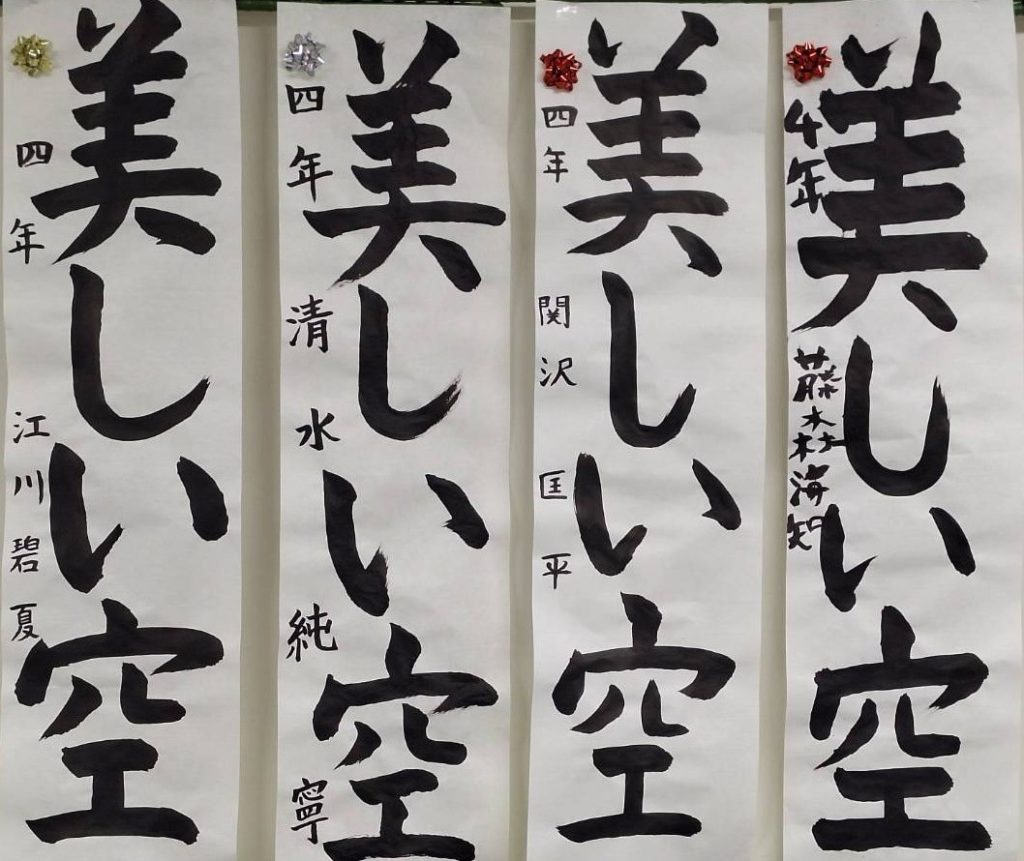 美しい空
4年 藤森海知
美しい空
四年 関沢匡平
美しい空
四年 清水純寧
美しい空
四年 江川碧夏